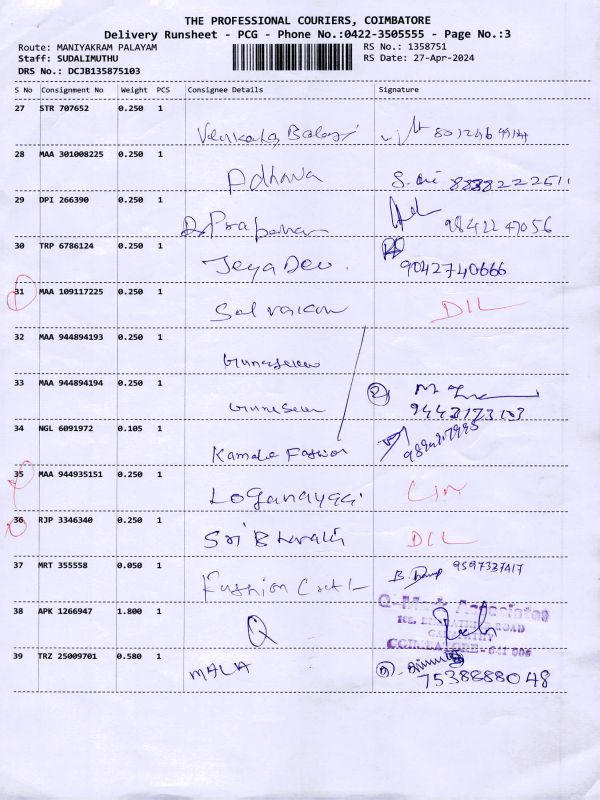 THE PROFESSIONAL COURIERS, COIMBATORE
Delivery Runsheet - PCG - Phone No.:0422-3505555 - Page No.:3
Route: MANIYAKRAM PALAYAM RS No.: 1358751
Staff: SUDALIMUTHU RS Date: 27-Apr-2024
DRS No.: DCJB135875103
S No Consignment No Weight PCS Consignee Details Signature
27 STR 707652 0.250 1
28 MAA 301008225 0.250 1
Adhava
29 DPI 266390 0.250 1
9842247056
30 TRP 6786124 0.250 1
Jeya Dev. 9042740666
31 MAA 109117225 0.250 1
DIL
32 MAA 944894193 0.250 1
33 MAA 944894194 0.250 1
34 NGL 6091972 0.105 1
Kamala
35 MAA 944935151 0.250 1
Loganayagi
36 RJP 3346340 0.250 1
Sri Bharath DIL
37 MRT 355558 0.050 1
Fashion 9597327417
38 APK 1266947 1.800 1
Q
ROAD
COIMBATORE - 641 006
39 TRZ 25009701 0.580 1
MALA 7538888048